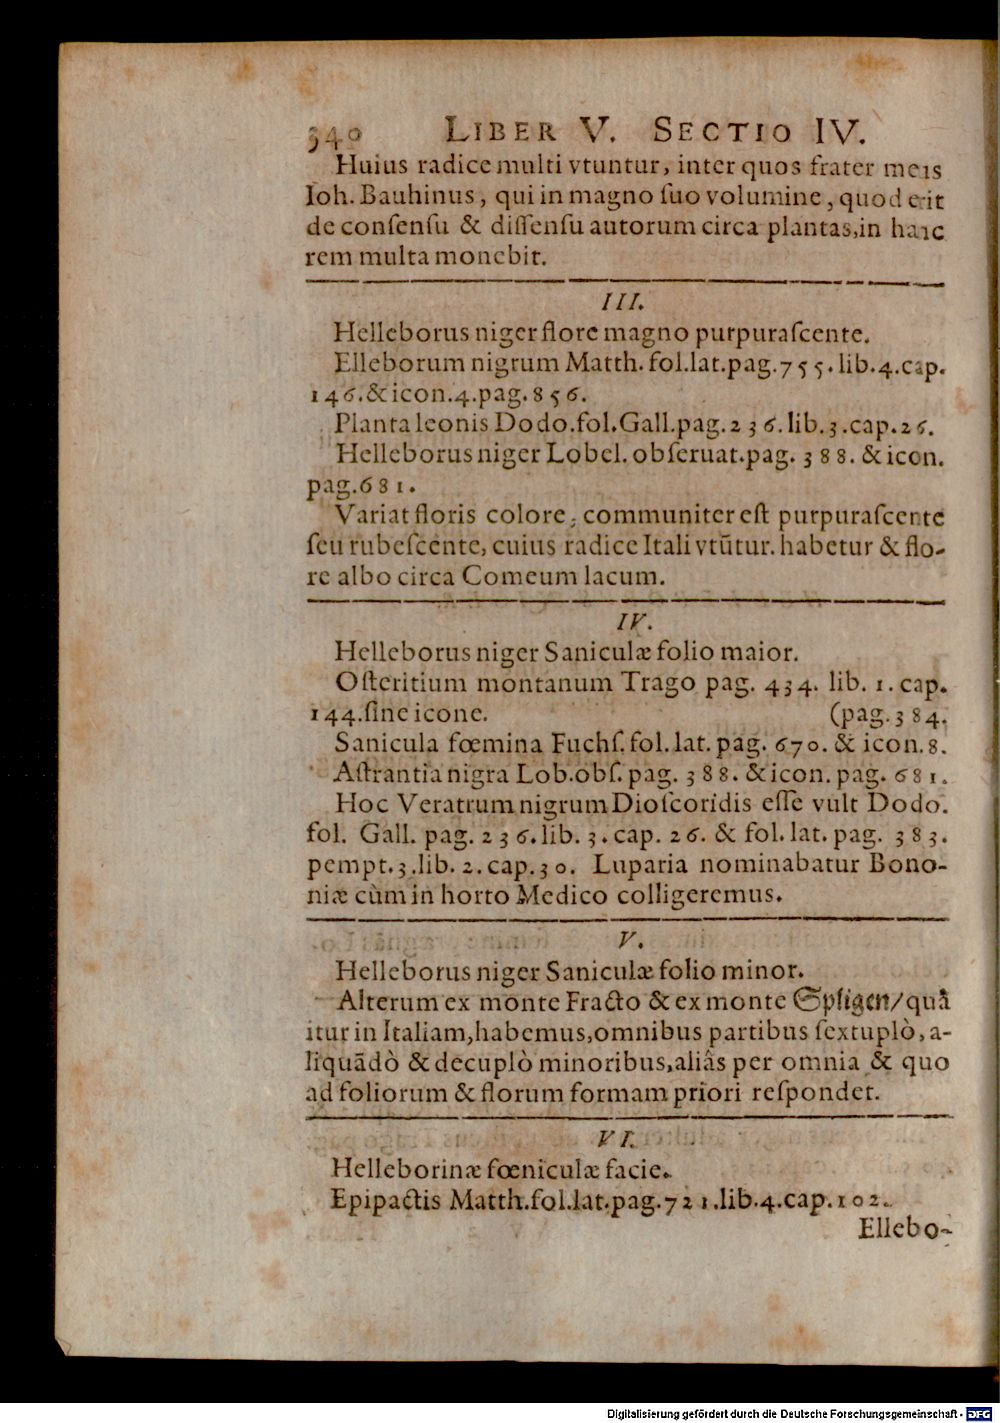 340 LIBER V. SECTIO IV.
Huius radice multi vtuntur, inter quos frater meus
Ioh. Bauhinus, qui in magno ſuo volumine, quod erit
de conſenſu & diſſenſu autorum circa plantas,in hanc
rem multa monebit.
III.
Helleborus niger flore magno purpuraſcente.
Elleborum nigrum Matth. fol.lat.pag.755.lib.4.cap.
146.&icon.4.pag.856.
Planta leonis Dodo.fol.Gall.pag.236.lib.3.cap.26.
Helleborus niger Lobel. obſeruat.pag. 388. & icon.
pag.681.
Variat floris colore, communiter eſt purpuraſcente
ſeu rubeſcente, cuius radice Itali vtūtur. habetur & flo-
re albo circa Comeum lacum.
IV.
Helleborus niger Saniculæ folio maior.
Oſteritium montanum Trago pag. 434. lib. 1. cap.
144.ſine icone. (pag.384.
Sanicula fœmina Fuchſ. fol. lat. pag. 670. & icon.8.
Aſtrantia nigra Lob.obſ. pag. 388. &icon. pag. 681.
Hoc Veratrum nigrum Dioſcoridis eſſe vult Dodo.
fol. Gall. pag. 236.lib. 3. cap. 26. & fol. lat. pag. 383.
pempt.3.lib. 2. cap.30. Luparia nominabatur Bono-
niæ cùm in horto Medico colligeremus.
V.
Helleborus niger Saniculæ folio minor.
Alterum ex monte Fracto & ex monte Spligen/quâ
itur in Italiam,habemus,omnibus partibus ſextuplò, a-
liquādò & decuplò minoribus,aliâs per omnia & quo
ad foliorum & florum formam priori reſpondet.
VI.
Helleborinæ fœniculæ facie.
Epipactis Matth.fol.lat.pag.721.lib.4.cap.102.
Ellebo-
Digitalisierung gefördert durch die Deutsche Forschungsgemeinschaft - DFG